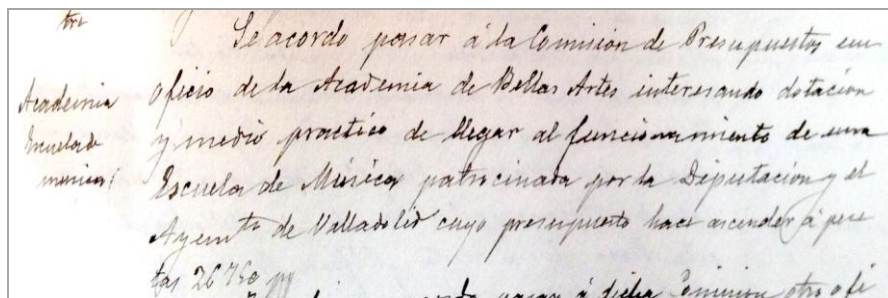 tro
Se acordo pasar á la Comision de Presupuestos un
Academia
oficio de la Academia de Bellas Artes interesando dotacion
Escuela de
y medio practico de llegar al funcionamiento de una
musica
Escuela de Música patrocinada por la Diputacion y el
Ayemto de Valladolid cuyo presupuesto hace ascender á pese
tas
pasar á dicha Comision otro ofi